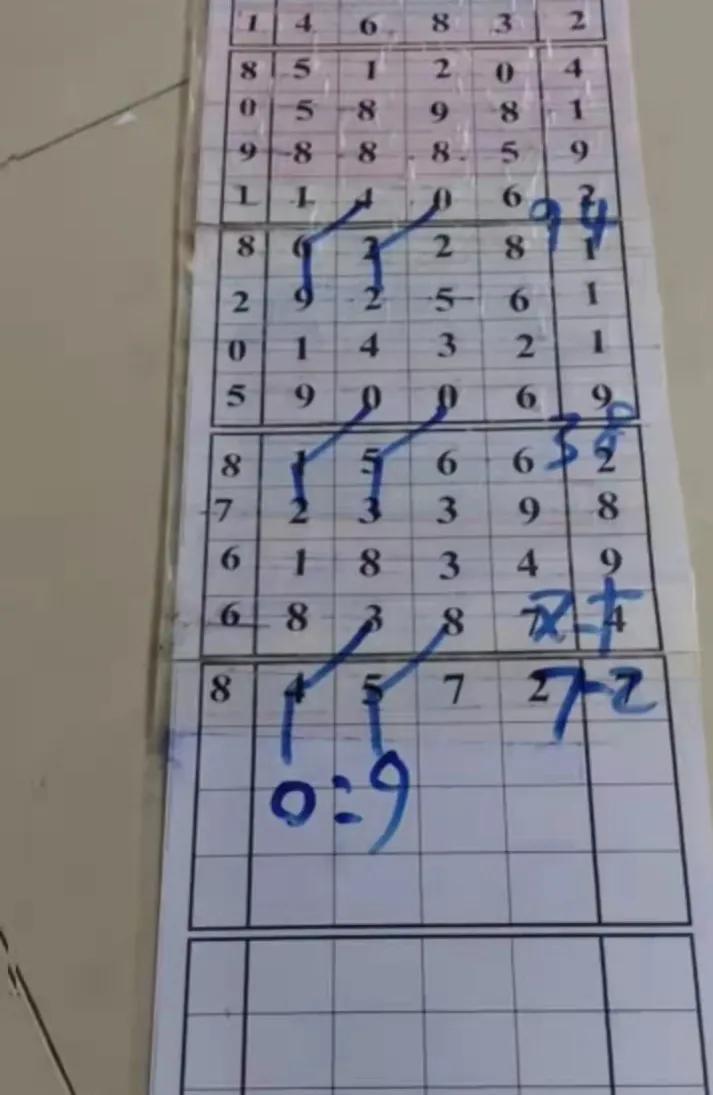 1 4 6 8 3 2
8 5 1 2 0 4
0 5 8 9 8 1
9 8 8 8 5 9
1 1 4 0 6 2
94
8 6 2 2 8 1
2 9 2 5 6 1
0 1 4 3 2 1
5 9 0 0 6 9
38
8 1 5 6 6 2
7 2 3 3 9 8
6 1 8 3 4 9
6 8 3 8 7 4
8 4 5 7 2 7
7-2
0=9